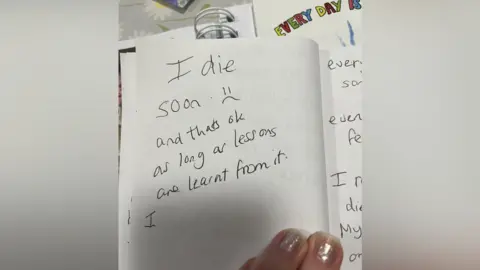 EVERY DAY IS
I die
soon :(
and thats ok
as long as lessons
are learnt from it.
I
ever
ever
fe
I
die
My